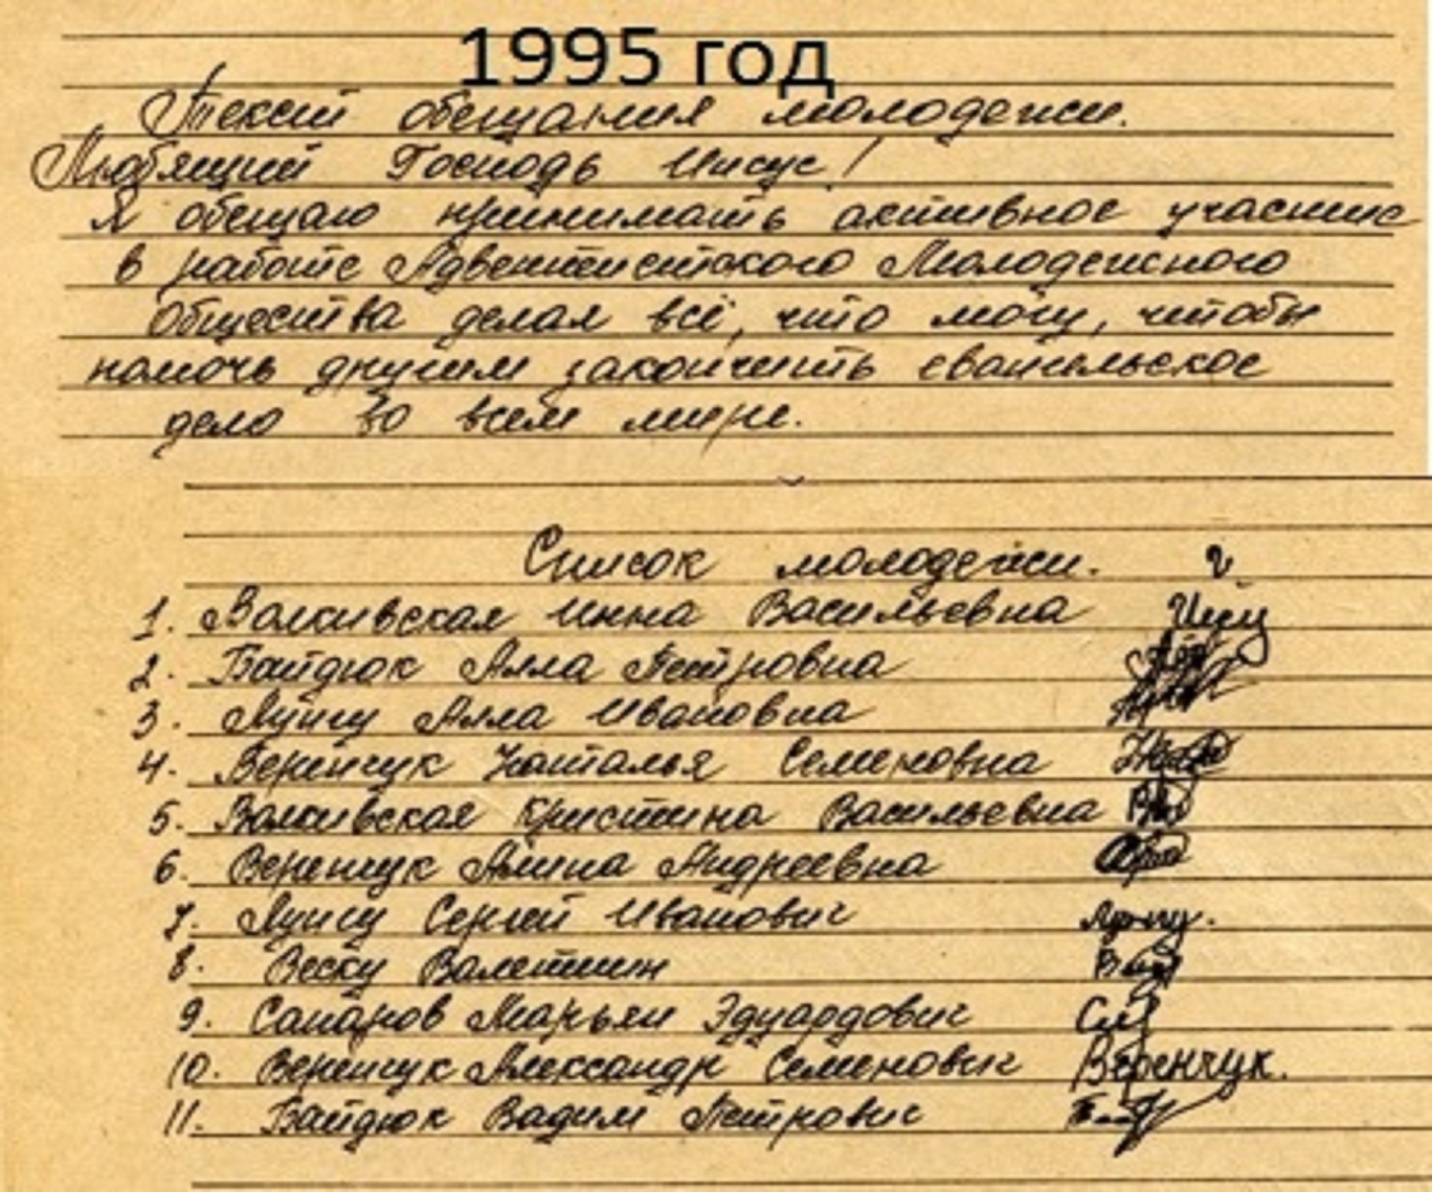 1995 год
Текст обещания молодежи.
Любящий Господь Иисус!
Я обещаю принимать активное участие
в работе Адвентистского Молодежного
Общества делая всё, что могу, чтобы
помочь другим закончить евангельское
дело во всем мире.
Список молодежи.
1. Валкивская Инна Васильевна
2. Байдюк Алла Петровна
3. Лупигу Алла Ивановна
4. Веренчук Наталья Семеновна
5. Валкивская Кристина Васильевна
6. Веренчук Алина Андреевна
7. Лупигу Сергей Иванович
8. Веску Валентин
9. Сапаров Марьян Эдуардович
10. Веренчук Александр Семенович Веренчук.
11. Байдюк Вадим Петрович